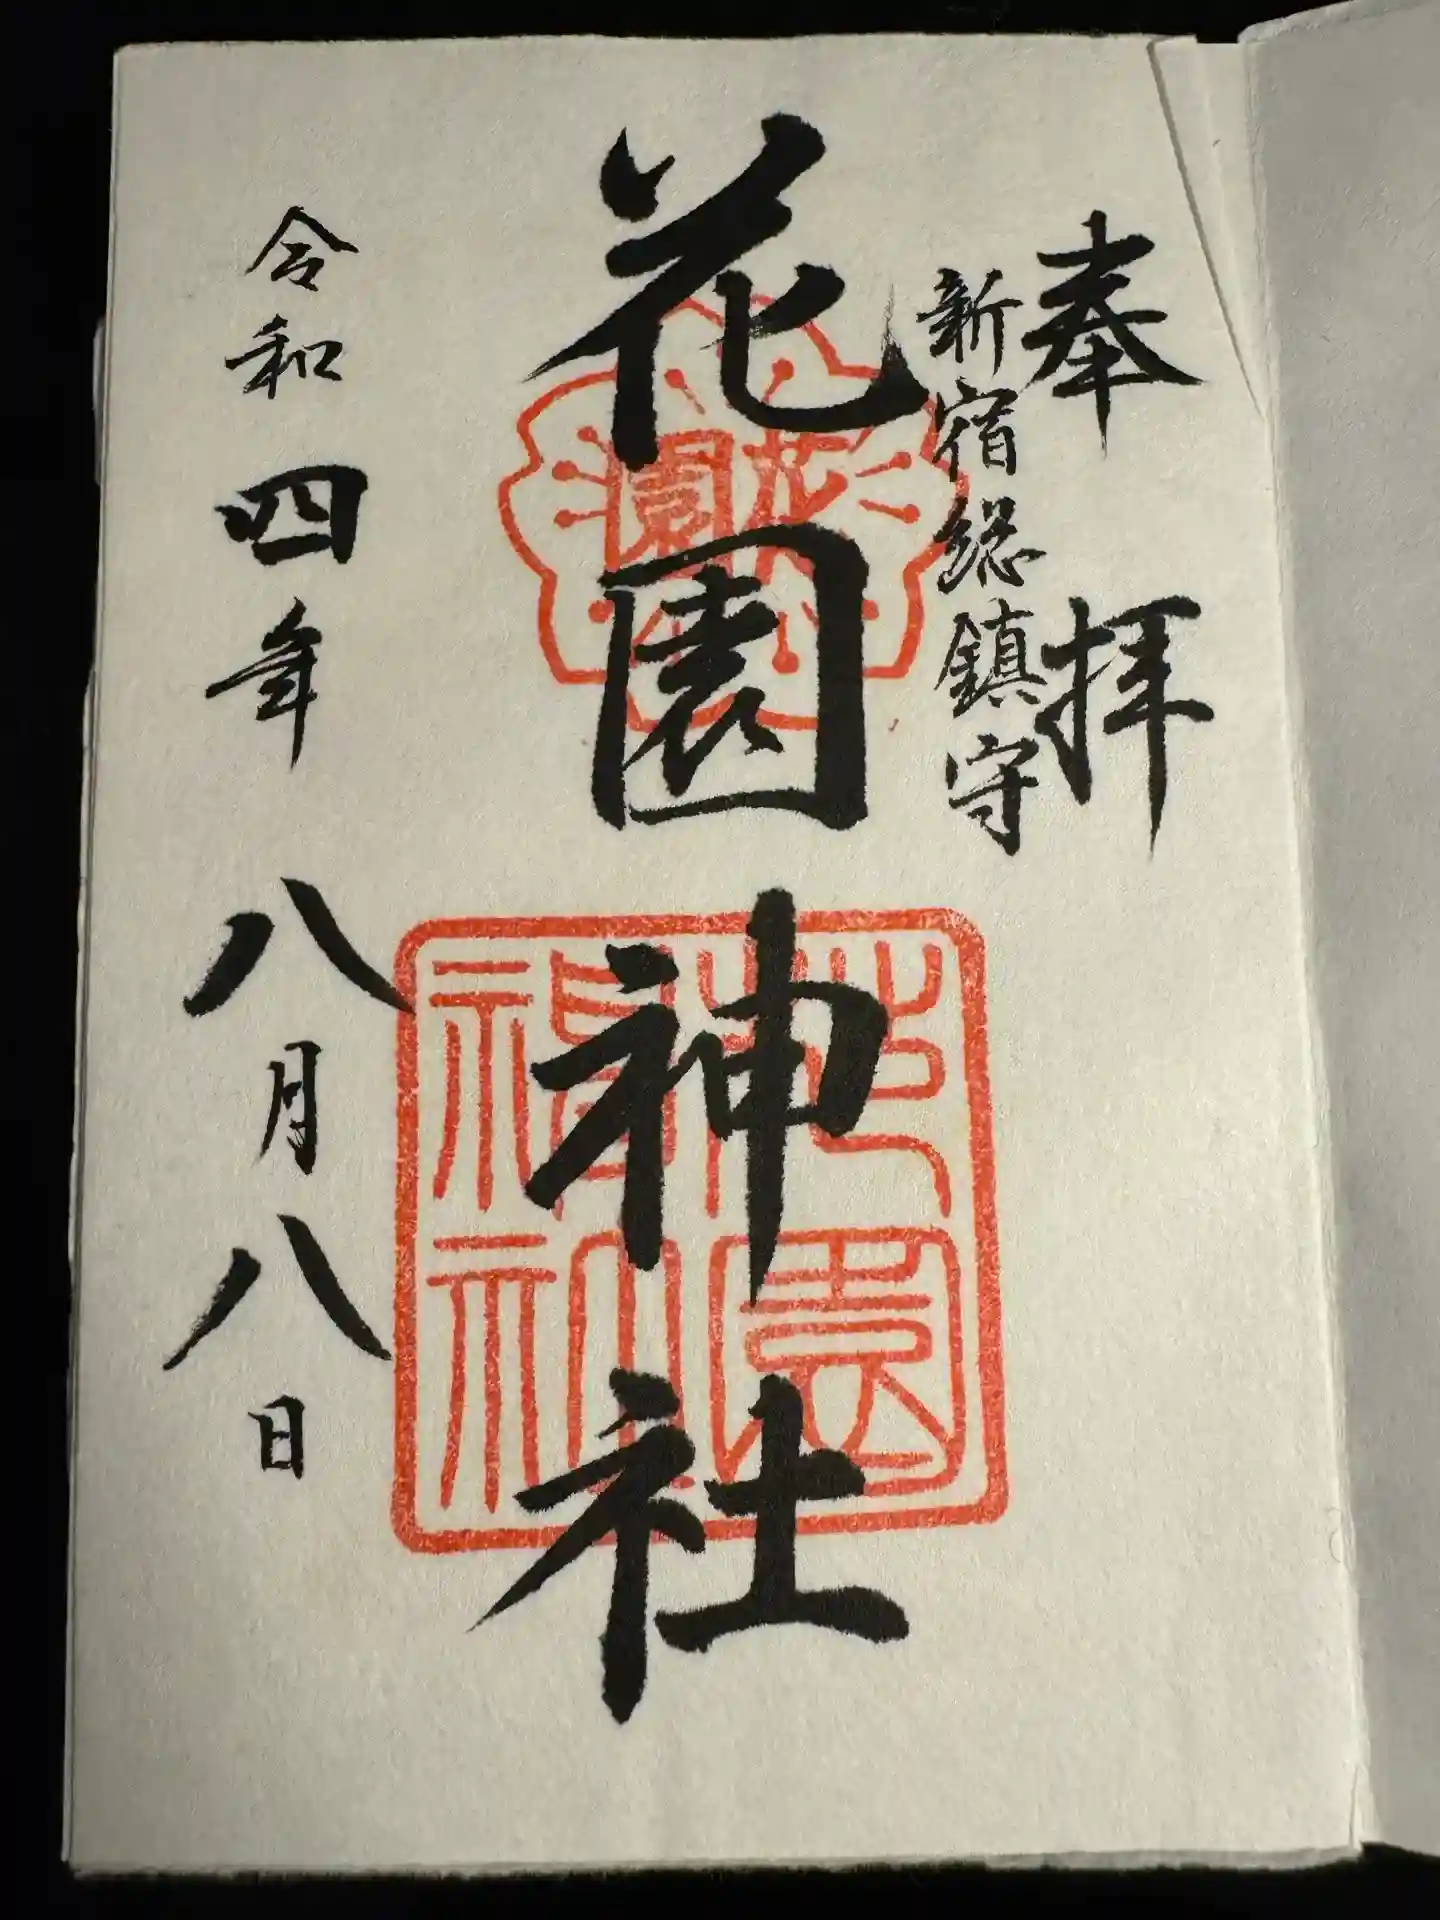 奉拝
新宿総鎮守
花園神社
花園
花園神社
令和四年八月八日